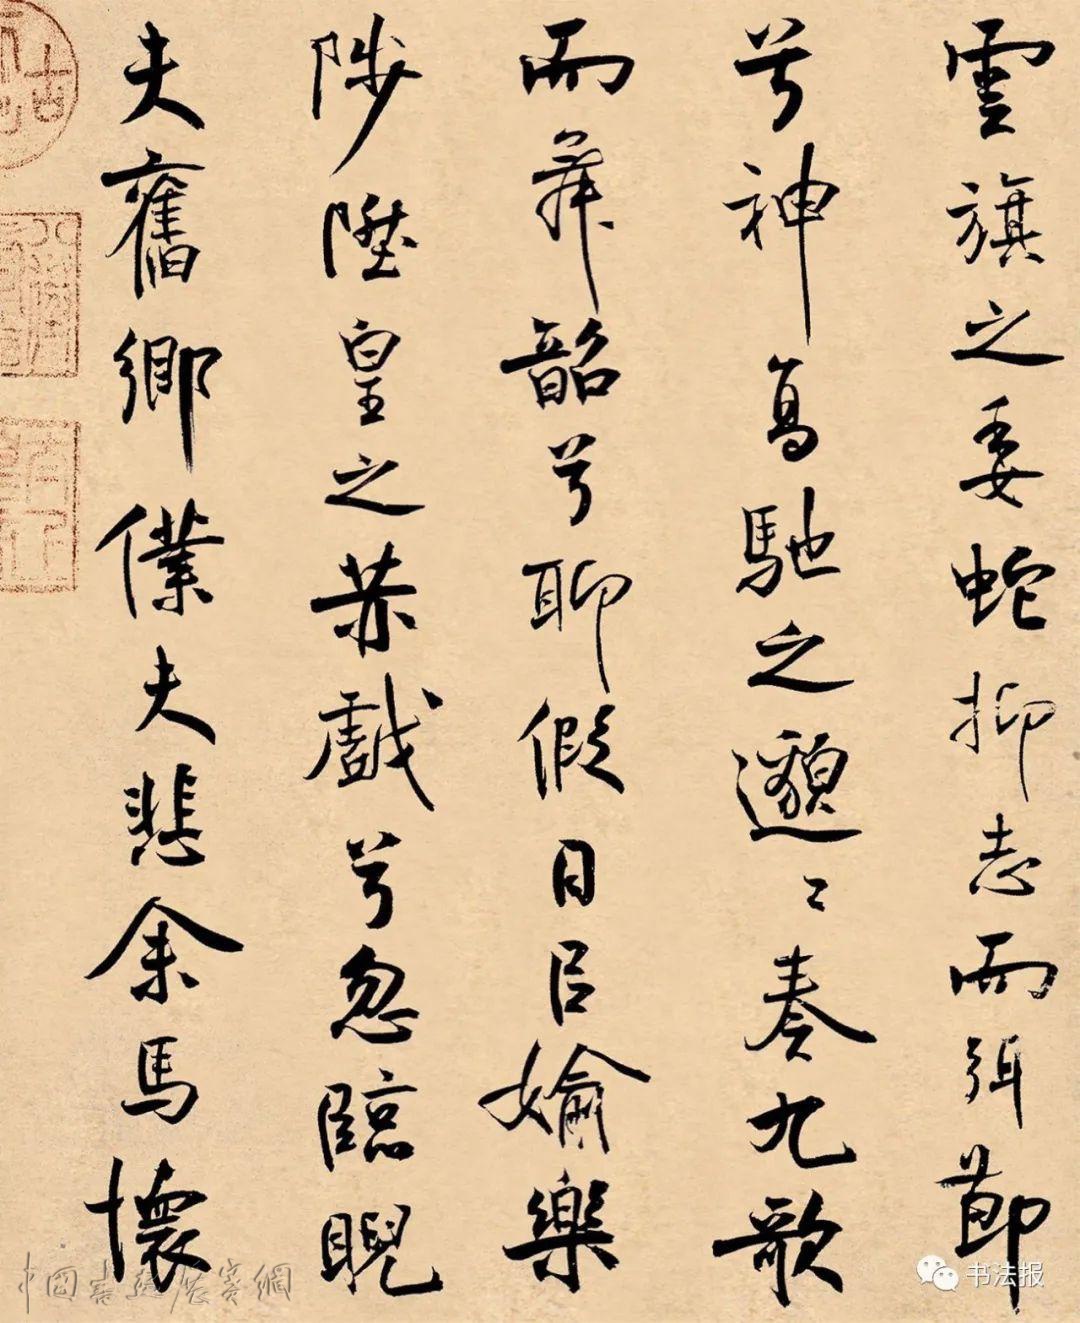 雲旗之委蛇抑志而弭節
兮神高馳之邈〻奏九歌
而舞韶兮聊假日㠯媮樂
陟陞皇之赫戲兮忽臨睨
夫舊鄉僕夫悲余馬懷
中國書法展賽網
书法报